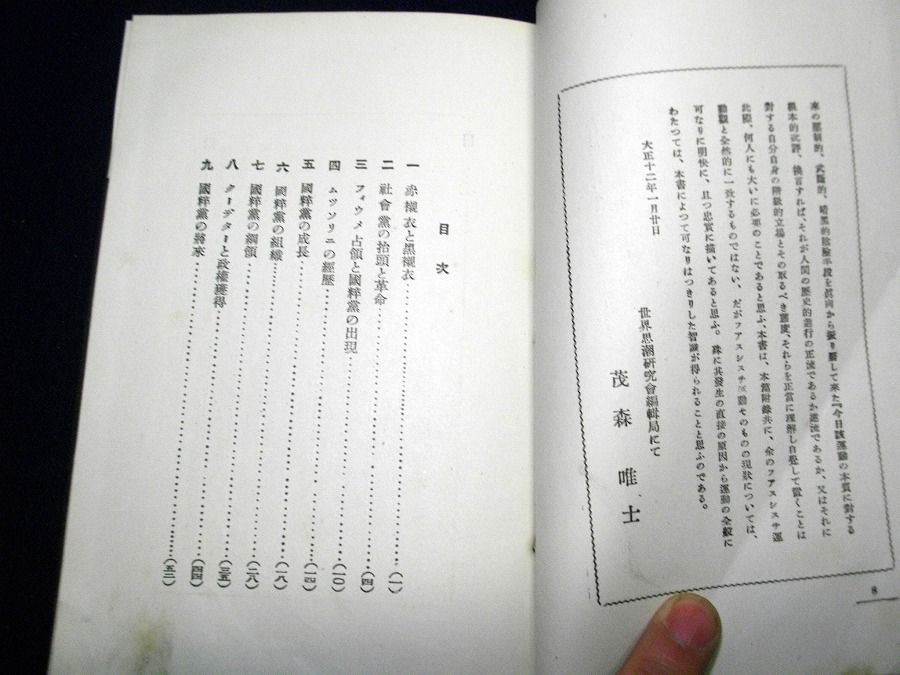 來の壓制的、武斷的、暗黑的陰險手段を眞向から振り翳して來た『今日該運動の本質に對する
根本的批評、換言すれば、それが人間の歷史的進行の正流であるか逆流であるか、又はそれに
對する自分自身の階級的立場とその取るべき態度、それらを正當に理解し自覺して置くことは
此際、何人にも大いに必要のことであると思ふ、本書は、本篇附錄共に、余のフアスシスチ運
動觀と全然的に一致するものではない、だがフアスシスチ運動そのものの現狀については、
可なりに明快に、且つ忠實に描いてあると思ふ。殊に其發生の直接の原因から運動の全般に
わたつては、本書によつて可なりはつきりした智識が得られることと思ふのである。
大正十二年一月廿日
世界思潮研究會編輯局にて
茂森唯士
8
目次
一 赤襯衣と黑襯衣……(一)
二 社會黨の抬頭と革命……(四)
三 フィウメ占領と國粹黨の出現……(一〇)
四 ムツソリニの經歷……(一四)
五 國粹黨の成長……(一八)
六 國粹黨の組織……(二八)
七 國粹黨の綱領……(三五)
八 クーデターと政權獲得……(四四)
九 國粹黨の將來……(五二)